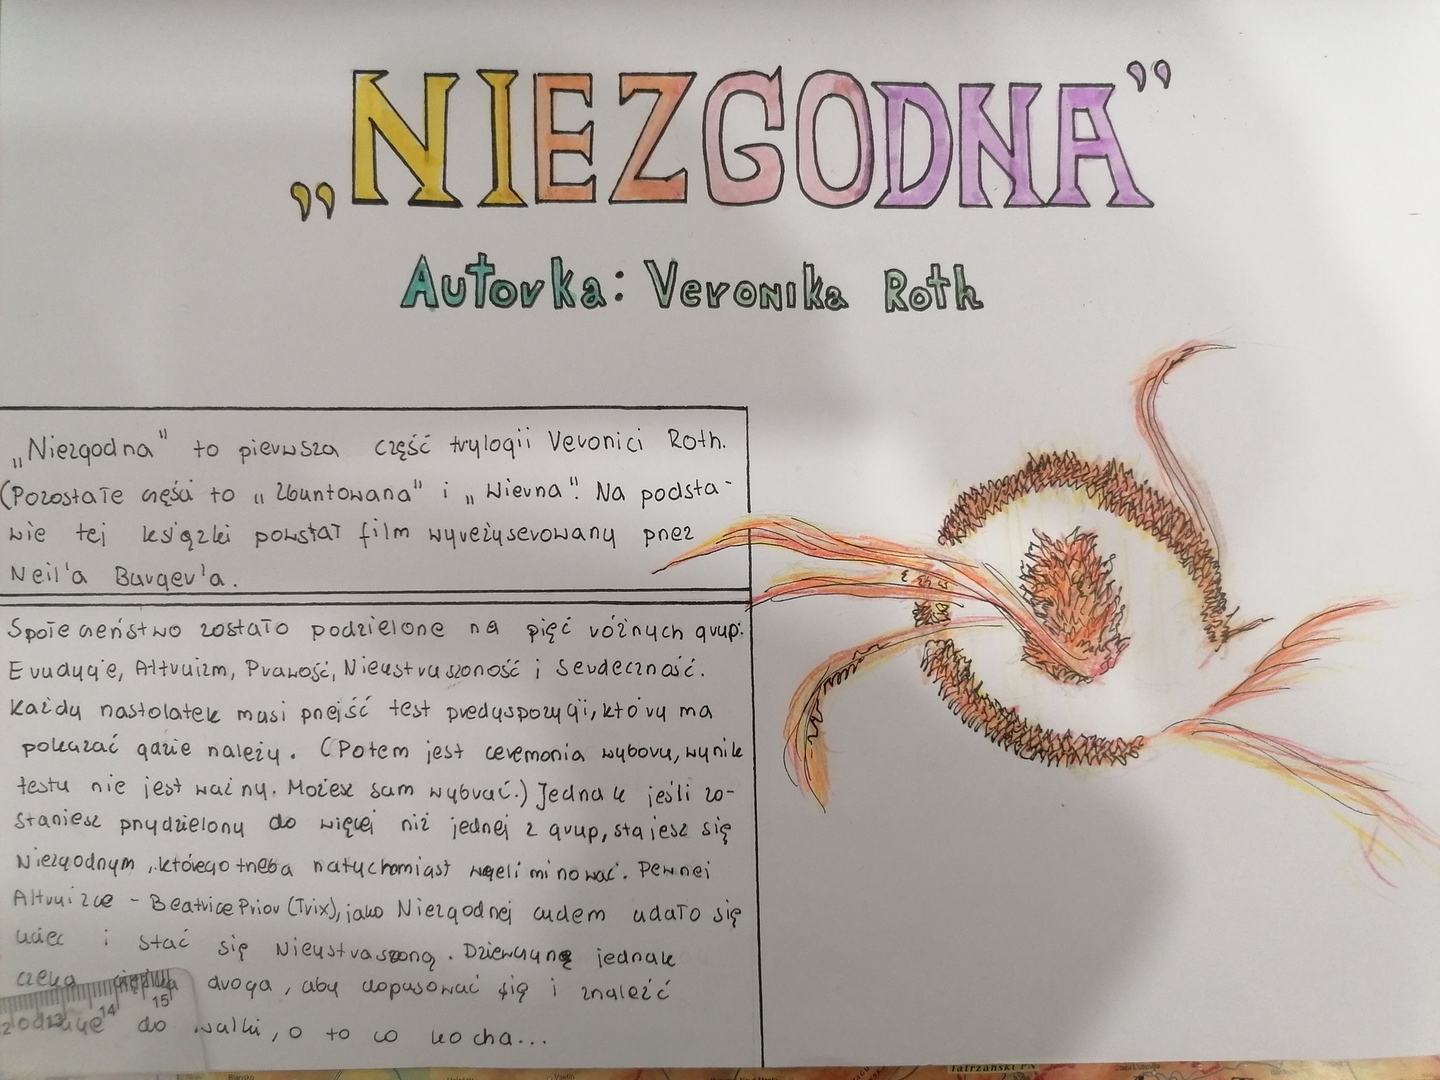 „NIEZGODNA”
Autorka: Veronika Roth
„Niezgodna" to pierwsza część trylogii Veronici Roth.
(Pozostałe części to „Zbuntowana" i „Wierna". Na podsta-
wie tej książki powstał film wyreżyserowany przez
Neil'a Burger'a.
Społeczeństwo zostało podzielone na pięć różnych grup:
Erudycję, Altruizm, Prawość, Nieustraszoność i Serdeczność.
Każdy nastolatek musi przejść test predyspozycji, który ma
pokazać gdzie należy. (Potem jest ceremonia wyboru, wynik
testu nie jest ważny. Możesz sam wybrać.) Jednak jeśli zo-
staniesz przydzielony do więcej niż jednej z grup, stajesz się
Niezgodnym, którego trzeba natychmiast wyeliminować. Pewnej
Altruizce - Beatrice Prior (Trix), jako Niezgodnej cudem udało się
uciec i stać się Nieustraszoną. Dziewczynę jednak
czeka ciężka droga, aby dopasować się i znaleźć
do walki, o to co kocha...
12 13 14 15
TATRZAŃSKI PN